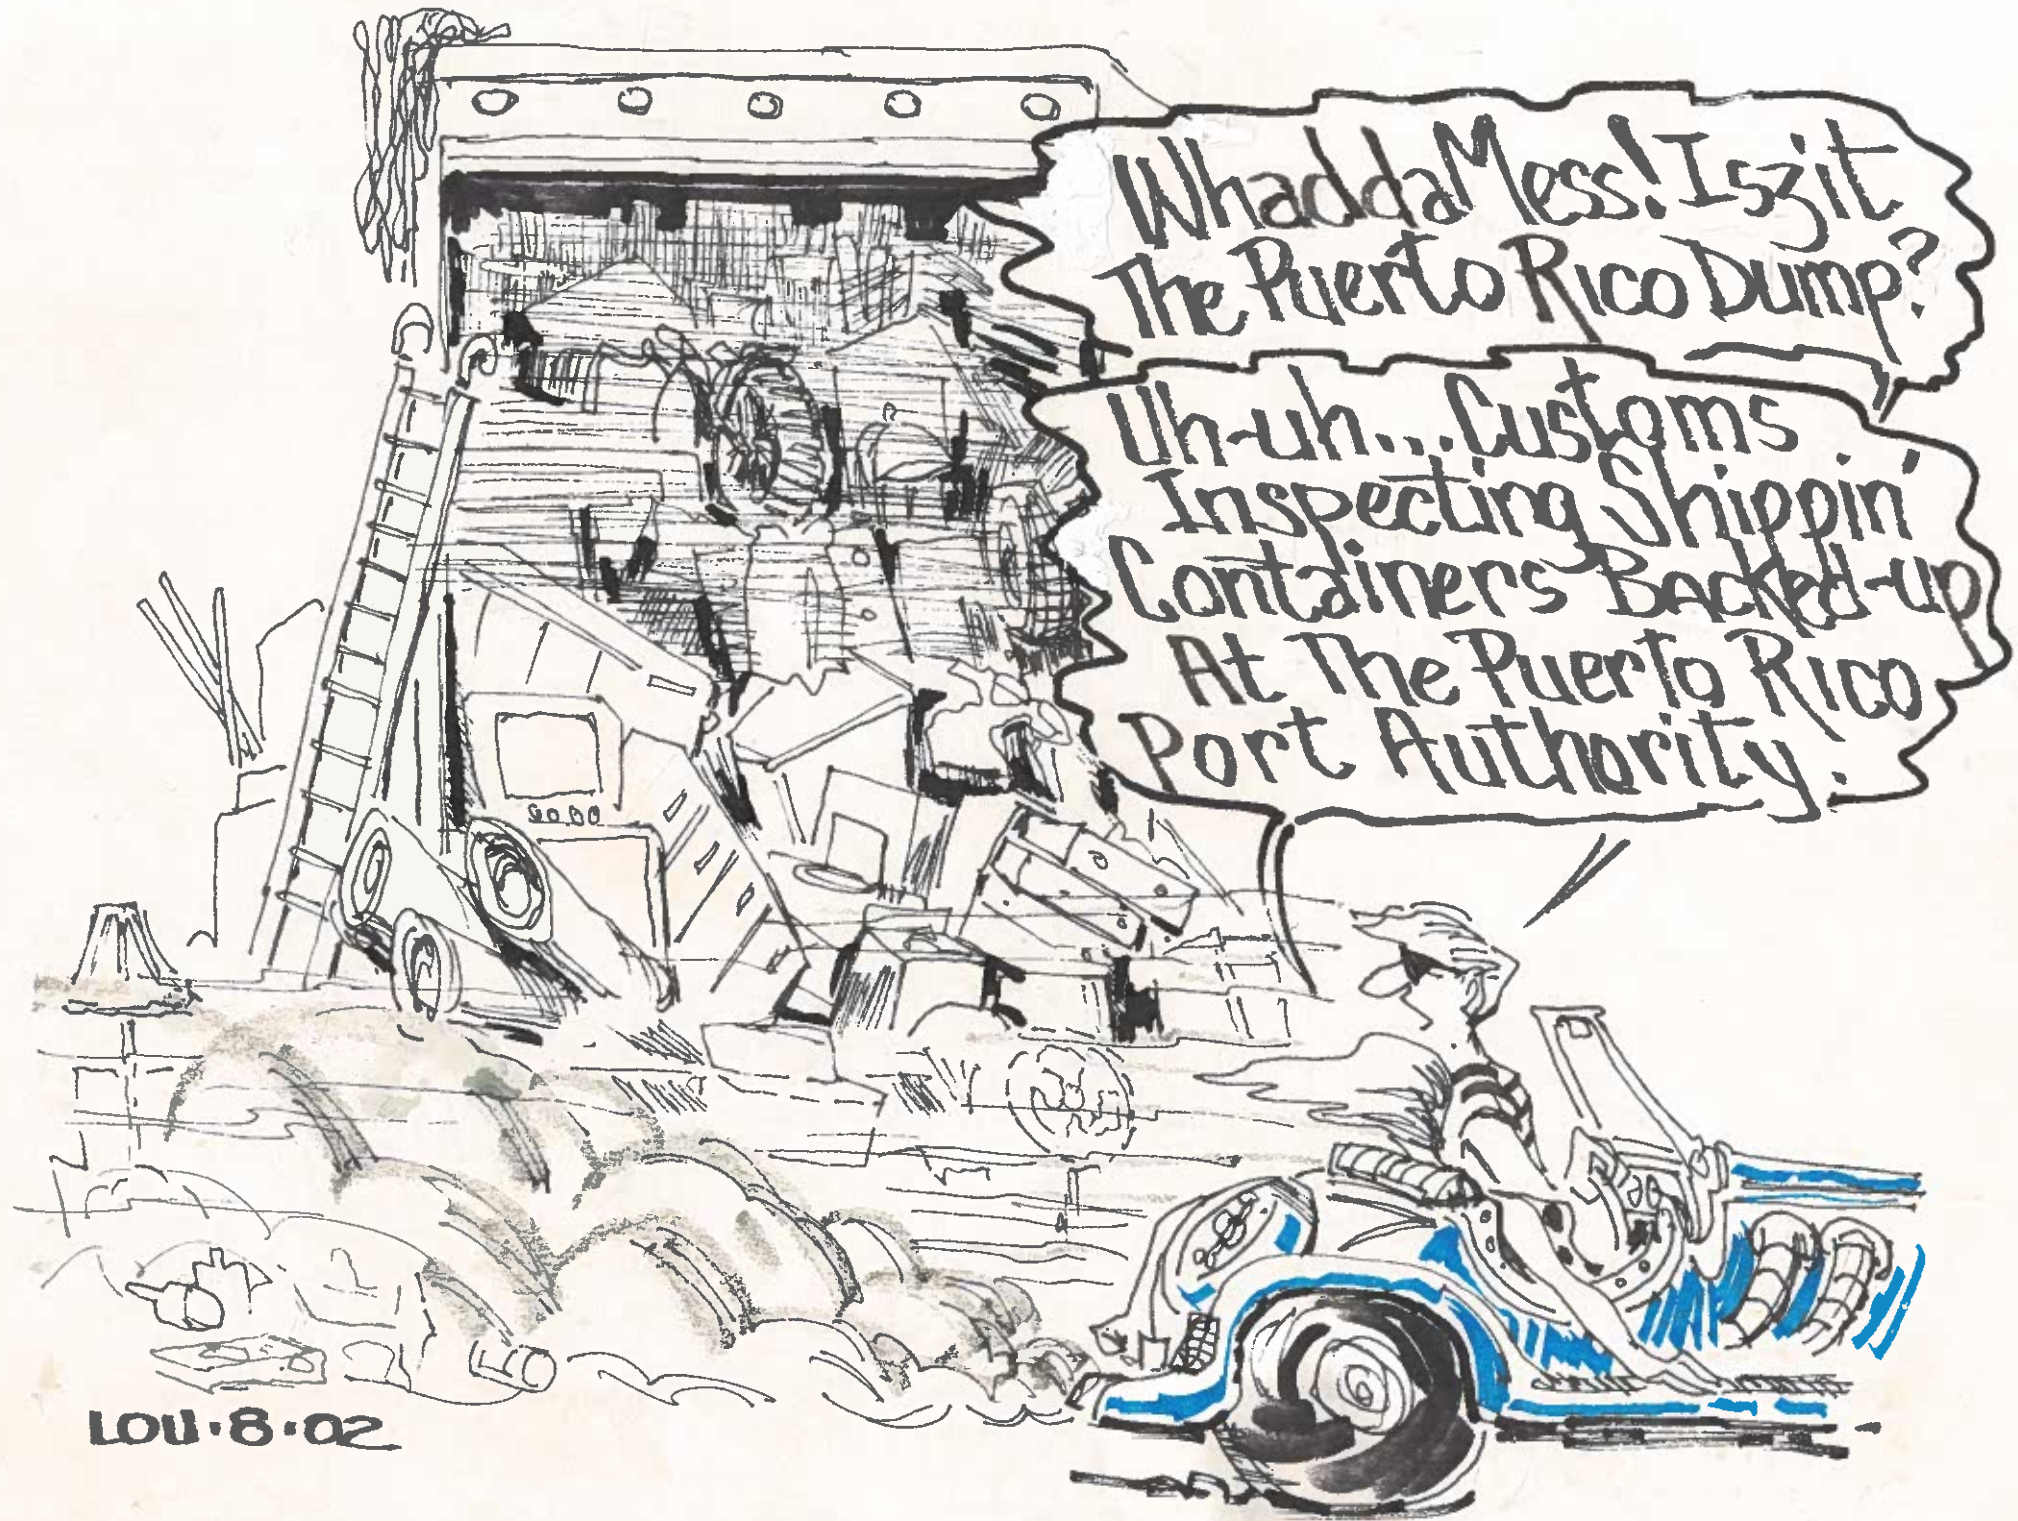 Whadda Mess! Iszit
The Puerto Rico Dump?
Uh-uh...Customs
Inspecting Shippin'
Containers Backed-up
At The Puerto Rico
Port Authority.
20.00
LOU.8.02